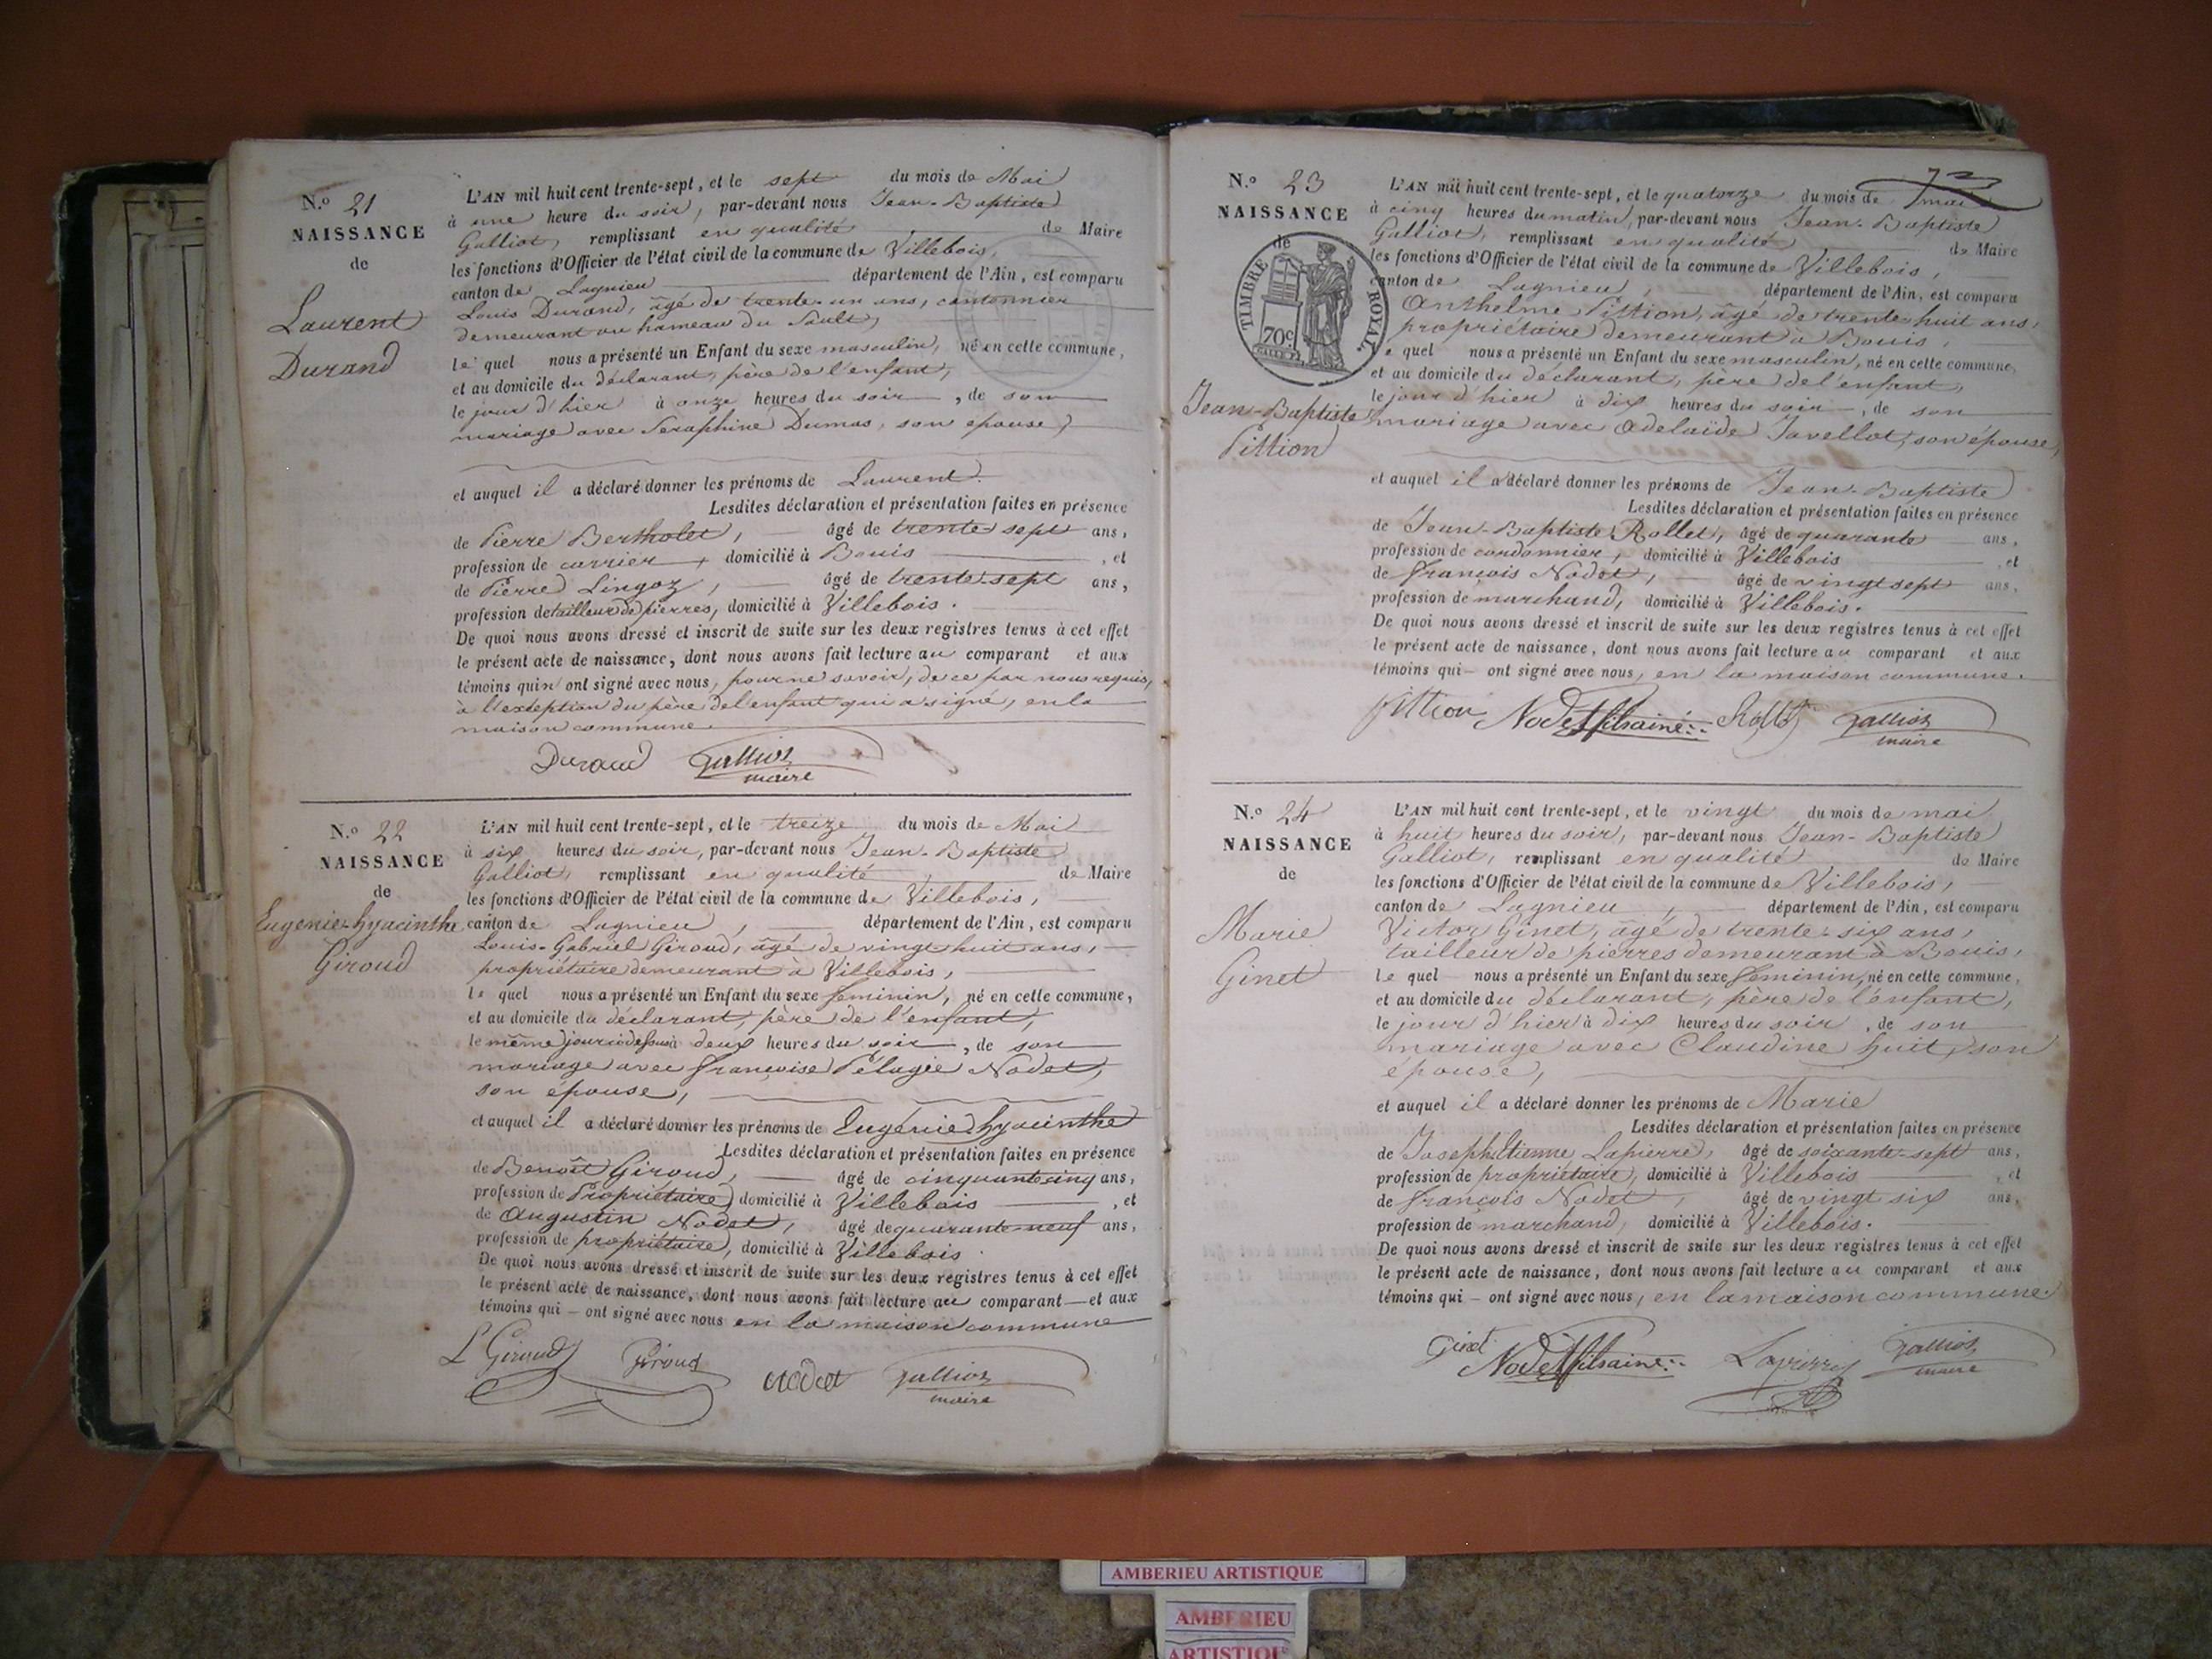 N.º 21
NAISSANCE
de
Laurent
Durand
L'AN mil huit cent trente-sept, et le sept du mois de Mai
à une heure du soir, par-devant nous Jean-Baptiste
Galliot, remplissant en qualité de Maire
les fonctions d'Officier de l'état civil de la commune de Villebois,
canton de Lagnieu département de l'Ain, est comparu
Louis Durand, âgé de trente-un ans, cantonnier
demeurant au hameau du Sault,
le quel nous a présenté un Enfant du sexe masculin, né en cette commune,
et au domicile du déclarant, père de l'enfant,
le jour d'hier à onze heures du soir, de son
mariage avec Seraphine Dumas, son épouse,
et auquel il a déclaré donner les prénoms de Laurent.
Lesdites déclaration et présentation faites en présence
de Pierre Bertholet, âgé de trente-sept ans,
profession de carrier, domicilié à Bouis, et
de Pierre Lingoz, âgé de trente-sept ans,
profession de tailleur de pierres, domicilié à Villebois.
De quoi nous avons dressé et inscrit de suite sur les deux registres tenus à cet effet
le présent acte de naissance, dont nous avons fait lecture au comparant et aux
témoins qui n'ont signé avec nous, pour ne savoir, de ce par nous requis,
à l'exception du père de l'enfant qui a signé, en la
maison commune.
Durand Galliot
maire
N.º 22
NAISSANCE
de
Eugenie-hyacinthe
Giroud
L'AN mil huit cent trente-sept, et le treize du mois de Mai
à six heures du soir, par-devant nous Jean-Baptiste
Galliot, remplissant en qualité de Maire
les fonctions d'Officier de l'état civil de la commune de Villebois,
canton de Lagnieu, département de l'Ain, est comparu
Louis-Gabriel Giroud, âgé de vingt-huit ans,
propriétaire demeurant à Villebois,
le quel nous a présenté un Enfant du sexe feminin, né en cette commune,
et au domicile du déclarant, père de l'enfant,
le même jour ci-dessus à deux heures du soir, de son
mariage avec françoise Pélagie Nodet,
son épouse,
et auquel il a déclaré donner les prénoms de Eugénie hyacinthe
Lesdites déclaration et présentation faites en présence
de Benoît Giroud, âgé de cinquante cinq ans,
profession de Propriétaire, domicilié à Villebois, et
de Augustin Nodet, âgé de quarante-neuf ans,
profession de propriétaire, domicilié à Villebois.
De quoi nous avons dressé et inscrit de suite sur les deux registres tenus à cet effet
le présent acte de naissance, dont nous avons fait lecture au comparant et aux
témoins qui ont signé avec nous en la maison commune
L Giroud Giroud Nodet Galliot
maire
72
N.º 23
NAISSANCE
de
TIMBRE ROYAL
70c
Jean-Baptiste
Pittion
L'AN mil huit cent trente-sept, et le quatorze du mois de mai
à cinq heures du matin, par-devant nous Jean-Baptiste
Galliot, remplissant en qualité de Maire
les fonctions d'Officier de l'état civil de la commune de Villebois,
canton de Lagnieu, département de l'Ain, est comparu
Anthelme Pittion, âgé de trente-huit ans,
propriétaire demeurant à Bouis,
le quel nous a présenté un Enfant du sexe masculin, né en cette commune,
et au domicile du déclarant, père de l'enfant,
le jour d'hier à dix heures du soir, de son
mariage avec Adelaïde Javellot, son épouse,
et auquel il a déclaré donner les prénoms de Jean-Baptiste
Lesdites déclaration et présentation faites en présence
de Jean-Baptiste Rollet, âgé de quarante ans,
profession de cordonnier, domicilié à Villebois, et
de françois Nodet, âgé de vingt sept ans,
profession de marchand, domicilié à Villebois.
De quoi nous avons dressé et inscrit de suite sur les deux registres tenus à cet effet
le présent acte de naissance, dont nous avons fait lecture au comparant et aux
témoins qui ont signé avec nous, en la maison commune.
Pittion Nodet fils ainé Rollet Galliot
maire
N.º 24
NAISSANCE
de
Marie
Ginet
L'AN mil huit cent trente-sept, et le vingt du mois de mai
à huit heures du soir, par-devant nous Jean-Baptiste
Galliot, remplissant en qualité de Maire
les fonctions d'Officier de l'état civil de la commune de Villebois,
canton de Lagnieu, département de l'Ain, est comparu
Victor Ginet, âgé de trente-six ans,
tailleur de pierres demeurant à Bouis,
le quel nous a présenté un Enfant du sexe feminin, né en cette commune,
et au domicile du déclarant, père de l'enfant,
le jour d'hier à dix heures du soir, de son
mariage avec Claudine huit, son
épouse,
et auquel il a déclaré donner les prénoms de Marie
Lesdites déclaration et présentation faites en présence
de Joseph Etienne Lapierre, âgé de soixante-sept ans,
profession de propriétaire, domicilié à Villebois, et
de françois Nodet, âgé de vingt six ans,
profession de marchand, domicilié à Villebois.
De quoi nous avons dressé et inscrit de suite sur les deux registres tenus à cet effet
le présent acte de naissance, dont nous avons fait lecture au comparant et aux
témoins qui ont signé avec nous, en la maison commune.
Ginet Nodet fils ainé Lapierre Galliot
maire
AMBERIEU ARTISTIQUE
AMBERIEU
ARTISTIQUE